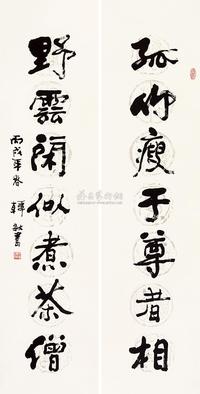 孤竹瘦于尊者相
野雲閑似煮茶僧
丙戌年春
韓敏書